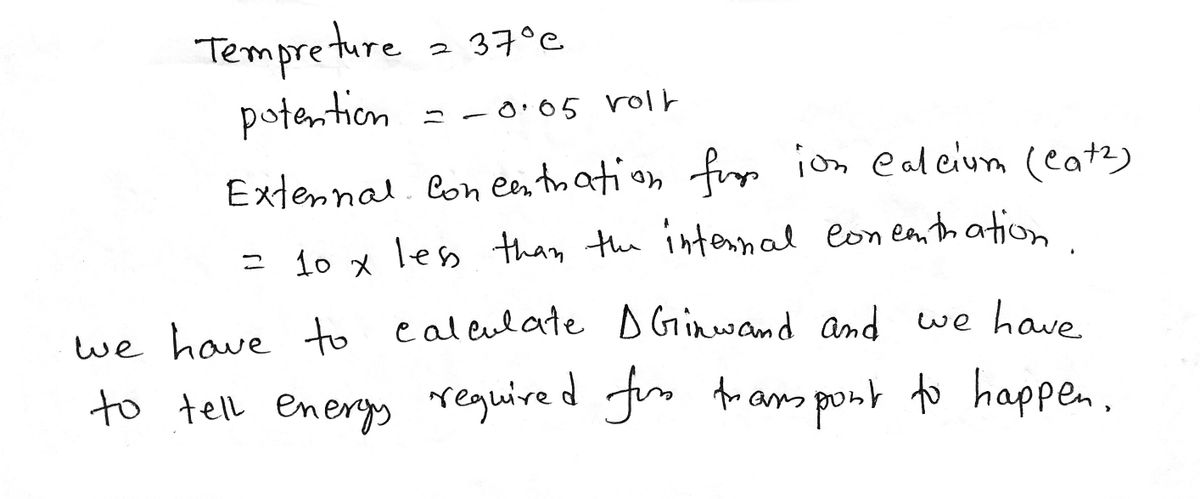 Tempreture = 37°c
potention = -0.05 volt
External concentration for ion calcium (ca+2)
= 10 x less than the internal concentration.
we have to calculate ΔGinward and we have
to tell energy required for transport to happen.